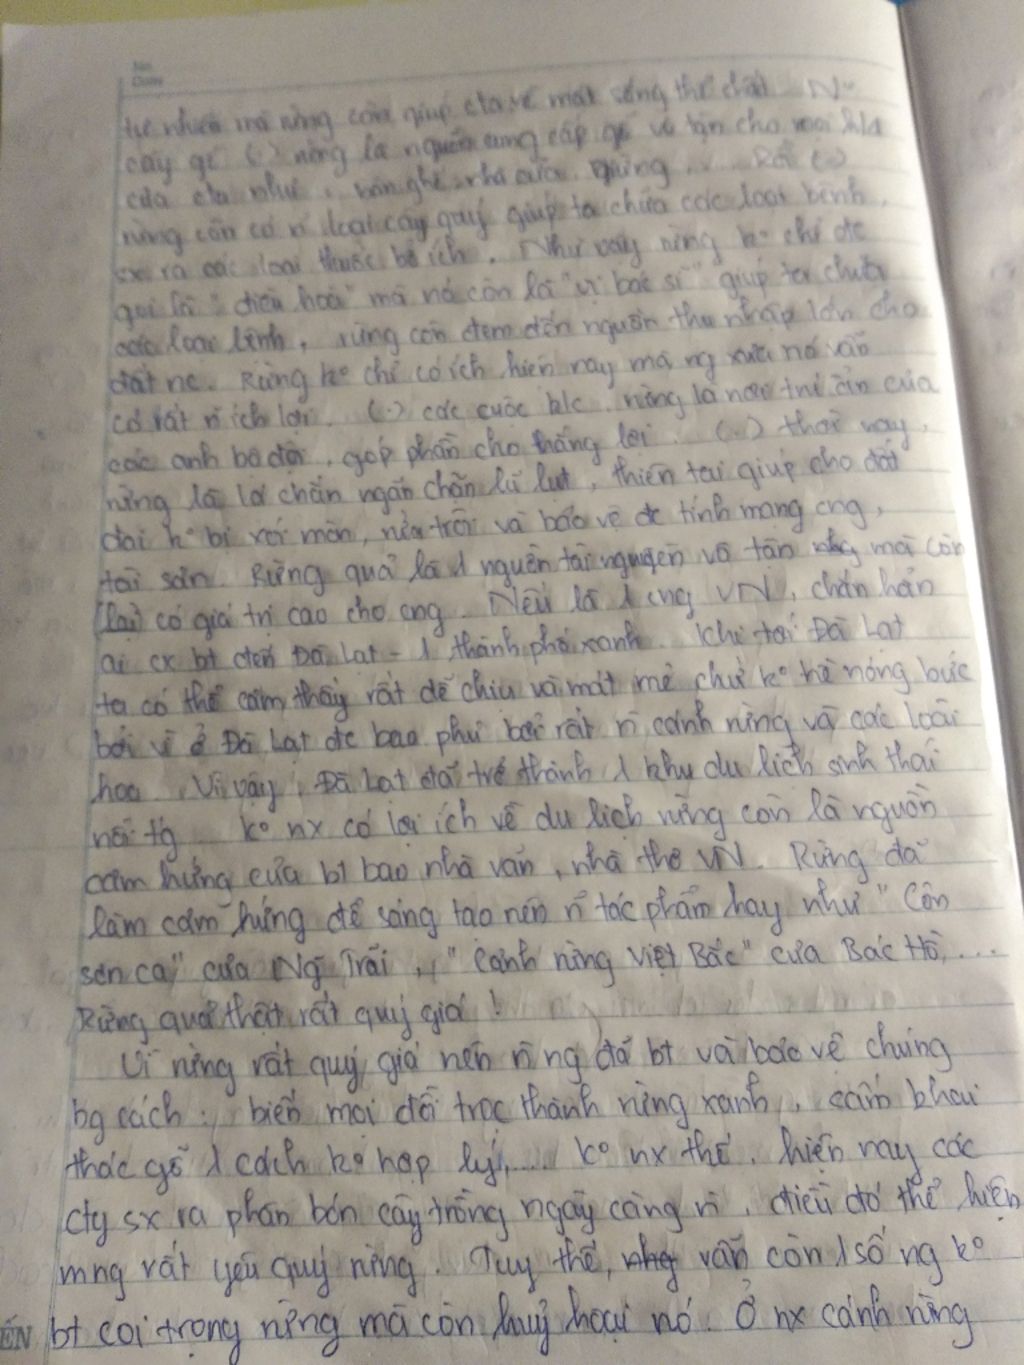 No.
Date
tự nhiên mà rừng còn giúp cta về mặt sống thể chất. N~
cây gỗ (.) rừng là nguồn cung cấp gỗ vô tận cho mọi
của cta như: bàn ghế, nhà cửa, giường, ... Rồi (.)
rừng còn có n loại cây quý giúp ta chữa các loại bệnh,
sx ra các loại thuốc bổ ích. Như vậy rừng ko chỉ đc
gọi là "điều hoà" mà nó còn là "vị bác sĩ" giúp ta chữa
các loại bệnh, rừng còn đem đến nguồn thu nhập lớn cho
đất nc. Rừng ko chỉ có ích hiện nay mà ng xưa nó vẫn
có rất n ích lợi. (.) các cuộc k/c, rừng là nơi trú ẩn của
các anh bộ đội, góp phần cho thắng lợi. (.) thời nay,
rừng là lá chắn ngăn chặn lũ lụt, thiên tai giúp cho đất
đai ko bị xói mòn, rửa trôi và bảo vệ đc tính mạng cng,
tài sản. Rừng quả là 1 nguồn tài nguyên vô tận mà còn
(lại) có giá trị cao cho cng. Nếu là 1 cng VN, chắn hẳn
ai cx bt đến Đà Lạt - 1 thành phố xanh. Khi tới Đà Lạt
ta có thể cảm thấy rất dễ chịu và mát mẻ chứ ko hề nóng bức
bởi vì ở Đà Lạt đc bao phủ bởi rất n cánh rừng và các loài
hoa. Vì vậy, Đà Lạt đã trở thành 1 khu du lịch sinh thái
nổi tg. Ko nx có lợi ích về du lịch rừng còn là nguồn
cảm hứng của bt bao nhà văn, nhà thơ VN. Rừng đã
làm cảm hứng để sáng tạo nên n tác phẩm hay như "Côn
sơn ca" của Ng Trãi, "Cảnh rừng Việt Bắc" của Bác Hồ, ...
Rừng quả thật rất quý giá!
Vì rừng rất quý giá nên n ng đã bt và bảo vệ chúng
bg cách: biến mọi đồi trọc thành rừng xanh, cấm khai
thác gỗ 1 cách ko hợp lý,.... Ko nx thế, hiện nay các
cty sx ra phân bón cây trồng ngày càng n, điều đó thể hiện
mng rất yêu quý rừng. Tuy thế, vẫn còn 1 số ng ko
bt coi trọng rừng mà còn huỷ hoại nó. Ở nx cánh rừng
ẾN